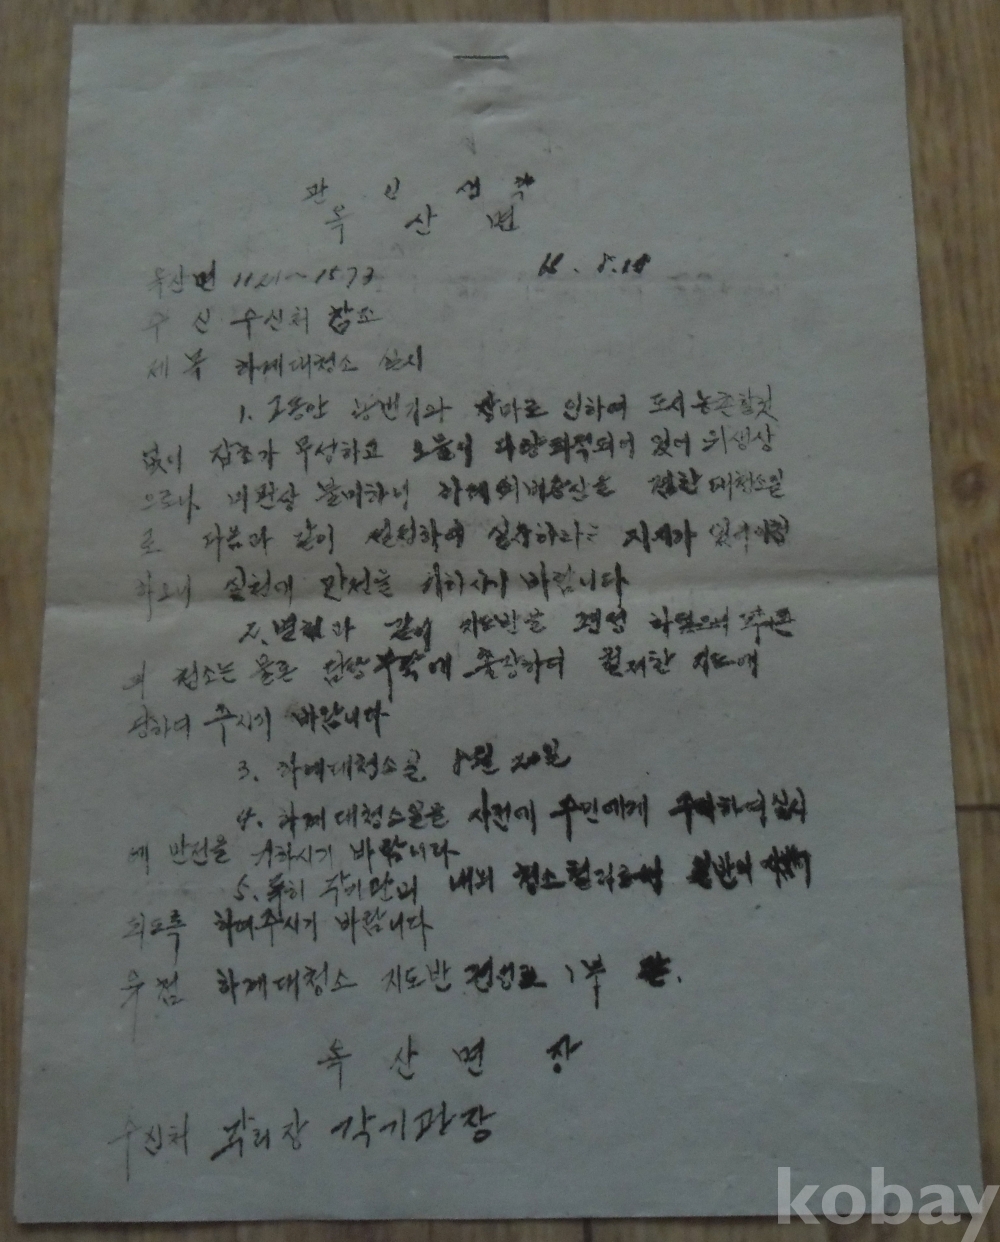 관 인 생 략
옥 산 면
옥산면 1573
수 신 수신처 참조
제 목 하계대청소 실시
1. 그동안 농번기와 장마로 인하여 도시농촌할것
없이 잡초가 무성하고 오물이 다량퇴적되어 있어 위생상
으로나 미관상 불미하니 하계
로 다음과 같이 설정하여 실시하라는 지시가
하오니 실천에 만전을 기하시기 바랍니다
2. 별첨과 같이 지도반을 편성 하였으니
의 청소는 물론 담당부락에 출장하여 철저한 지도에
당하여 주시기 바랍니다
3. 하계대청소일 8월 20일
4. 하계대청소일을 사전에 주민에게 주지하여 실시
에 만전을 기하시기 바랍니다
5. 특히 각기관의 내외 청소
되도록 하여주시기 바랍니다
유첨 하계대청소 지도반 편성표 1부 끝.
옥 산 면 장
수신처 각리장 각기관장
kobay